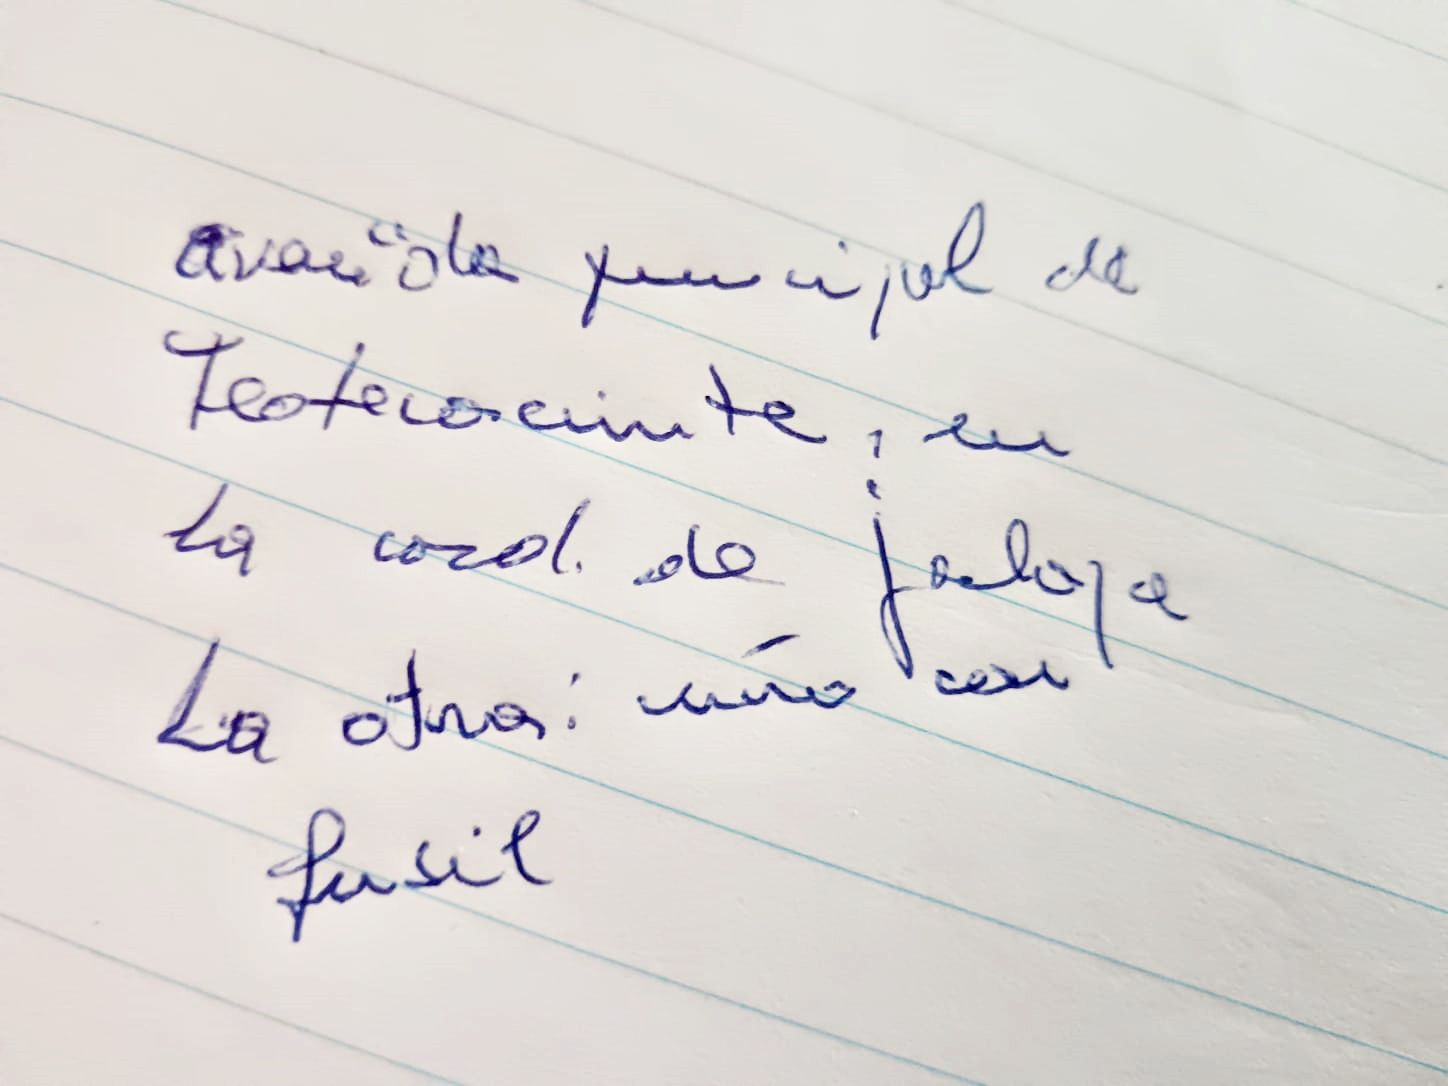 principal de
Teotecacinte, en
la cord. de jalapa
La otra: niño con
fusil